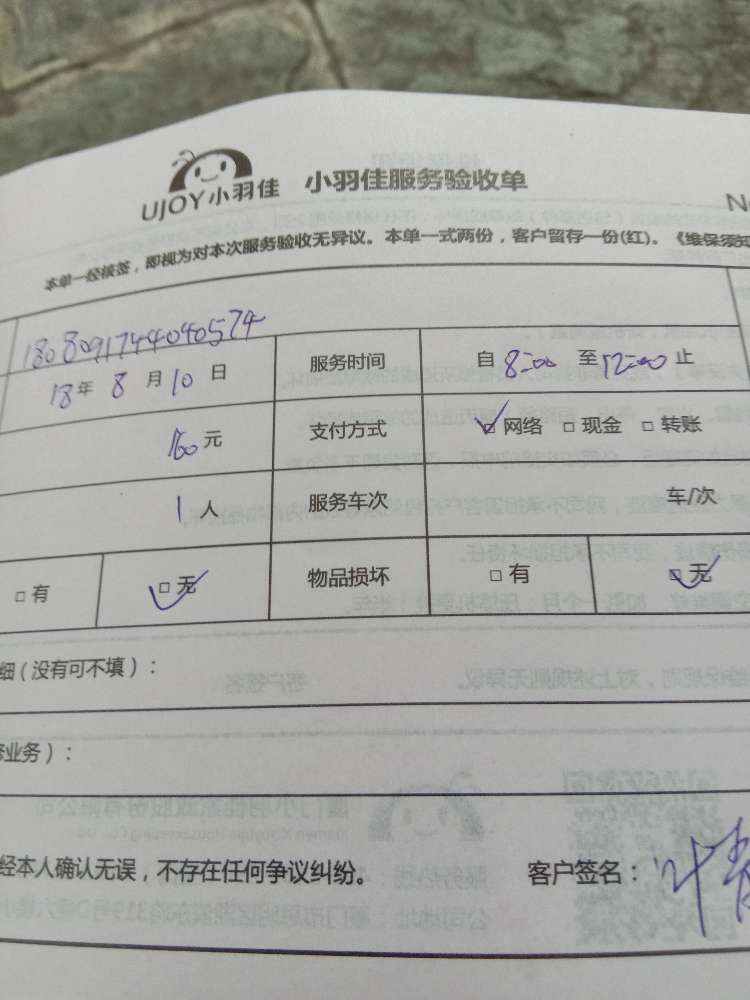 UJOY小羽佳 小羽佳服务验收单
N
本单一经核签，即视为对本次服务验收无异议。本单一式两份，客户留存一份(红)。《维保须知
1808091744040574
18年 8 月 10 日 服务时间 自 8:00 至 12:00 止
160元 支付方式 网络 现金 转账
1人 服务车次 车/次
有 无 物品损坏 有 无
细（没有可不填）：
业务）：
经本人确认无误，不存在任何争议纠纷。 客户签名：叶